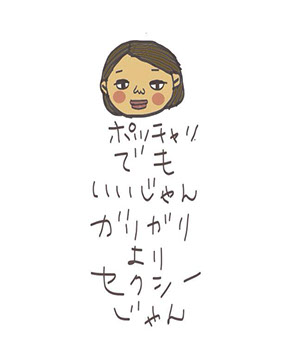 ポッチャリ
でも
いいじゃん
ガリガリ
より
セクシー
じゃん